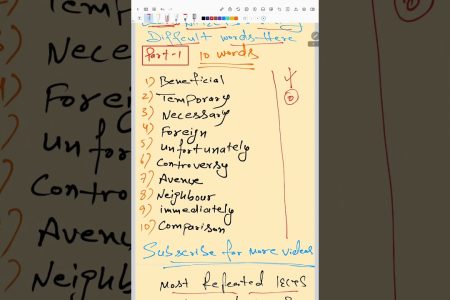 Difficult words-Here
Part-1 10 words
1) Beneficial
2) Temporary
3) Necessary
4) Foreign
5) unfortunately
6) Controversy
7) Avenue
8) Neighbour
9) immediately
10) Comparison
Subscribe for more videos
Most Repeated